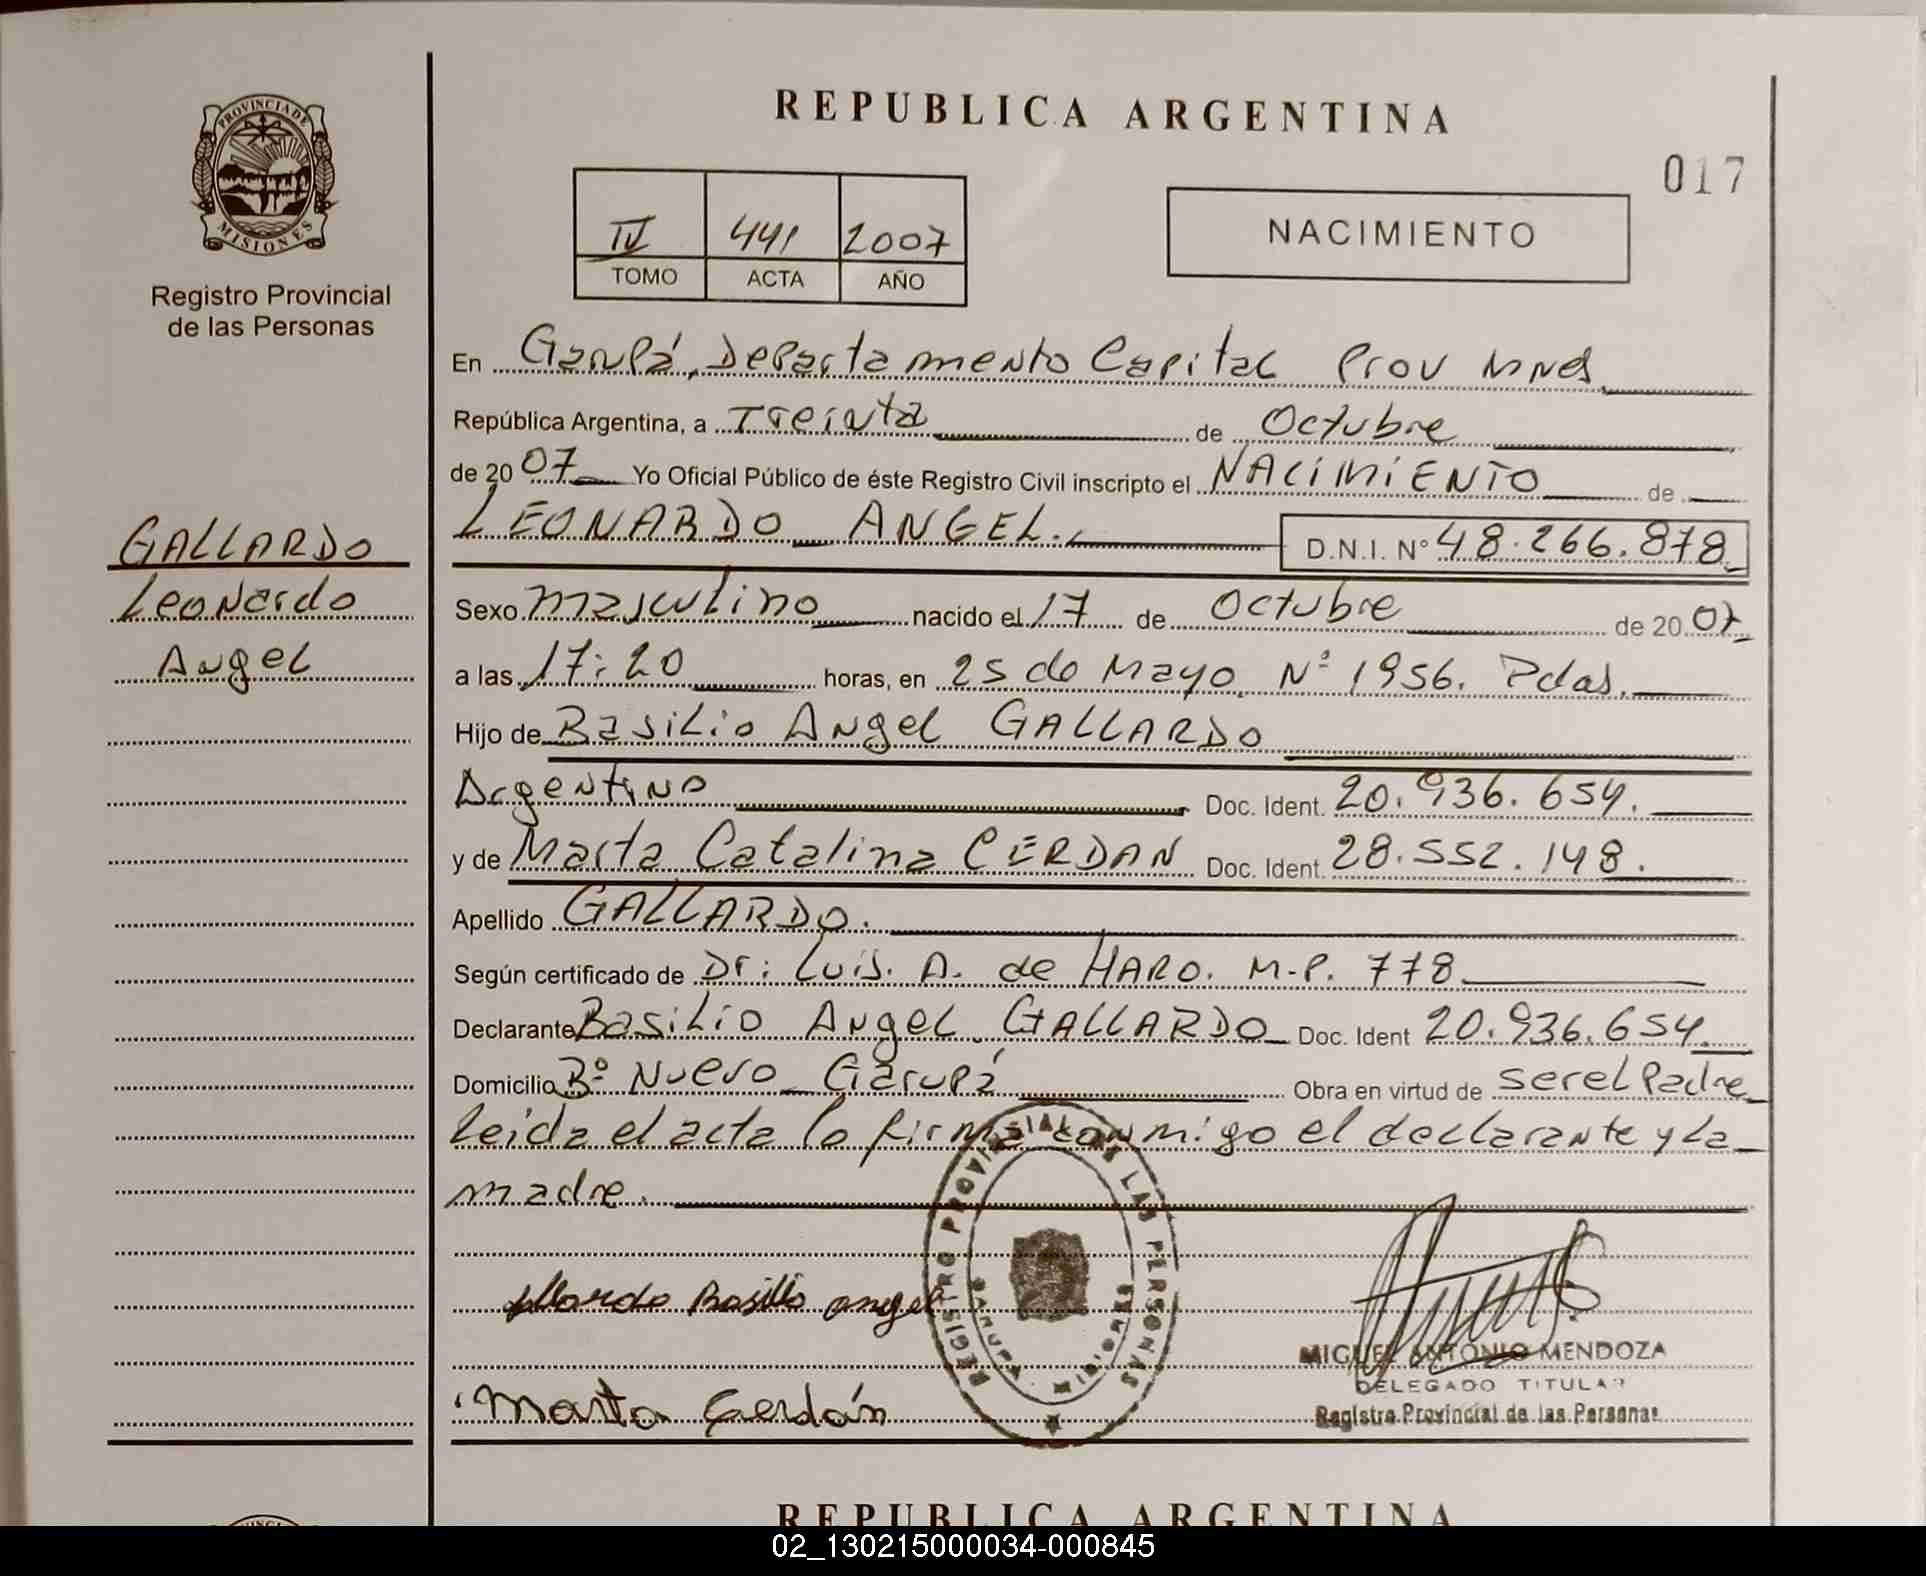 REPUBLICA ARGENTINA
017
PROVINCIA DE
MISIONES
Registro Provincial
de las Personas
IV 441 2007
TOMO ACTA AÑO
NACIMIENTO
En Garupá, Departamento Capital Prov Mnes
República Argentina, a Treinta de Octubre
de 2007 Yo Oficial Público de éste Registro Civil inscripto el NACIMIENTO de
LEONARDO ANGEL. D.N.I. N° 48.266.878
GALLARDO
Leonardo
Angel
Sexo masculino nacido el 17 de Octubre de 2007
a las 17:20 horas, en 25 de Mayo N° 1956. Pdas.
Hijo de Basilio Angel GALLARDO
Argentino Doc. Ident. 20.936.654.
y de Marta Catalina CERDAN Doc. Ident. 28.552.148.
Apellido GALLARDO.
Según certificado de Dr: Luis. A. de HARO. M.P. 778
Declarante Basilio Angel GALLARDO Doc. Ident 20.936.654.
Domicilio B° Nuevo Garupá Obra en virtud de ser el Padre
leida el acta la firma conmigo el declarante y la
madre.
REGISTRO PROVINCIAL DE LAS PERSONAS
GARUPA MISIONES
Gallardo Basilio angel
Marta Cerdán
MIGUEL ANTONIO MENDOZA
DELEGADO TITULAR
Registro Provincial de las Personas
REPUBLICA ARGENTINA
02_130215000034-000845